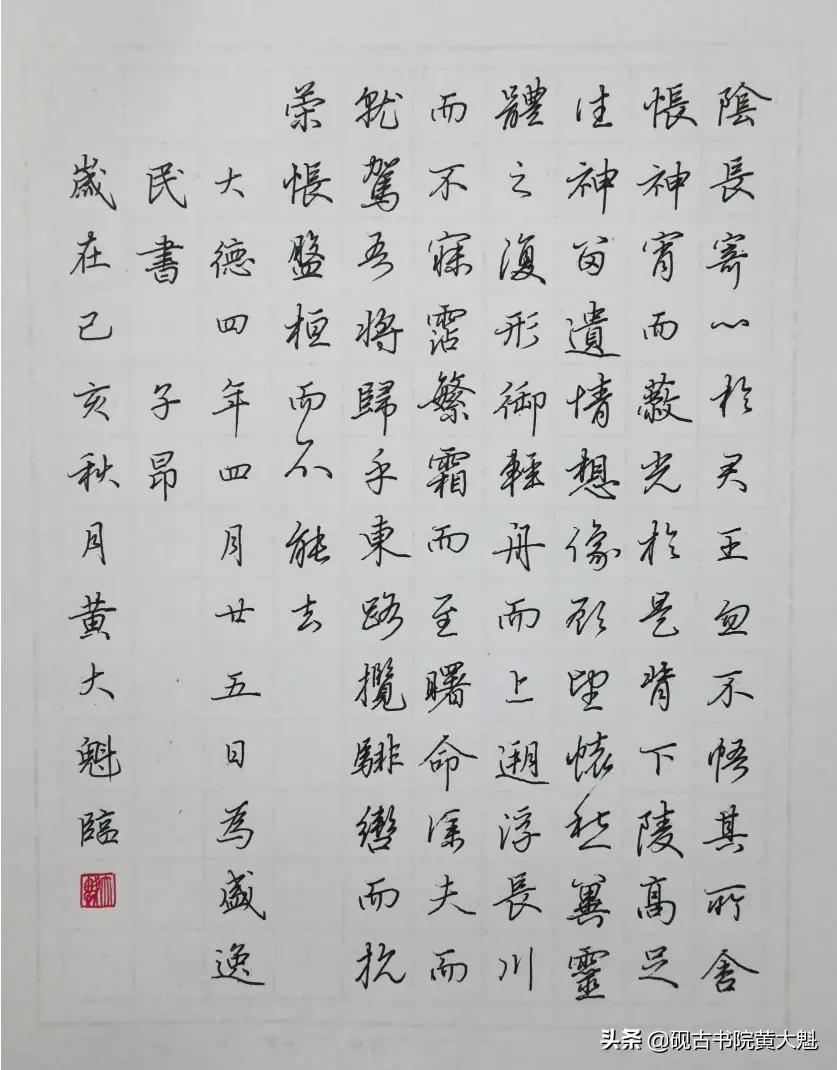 陰長寄心於君王忽不悟其所舍
悵神宵而蔽光於是背下陵高足
往神留遺情想像顧望懷愁冀靈
體之復形御輕舟而上遡浮長川
而不寐霑繁霜而至曙命僕夫而
就駕吾將歸乎東路攬騑轡而抗
策悵盤桓而不能去
大德四年四月廿五日為盛逸
民書 子昂
歲在己亥秋月黃大魁臨
头条 @砚古书院黄大魁